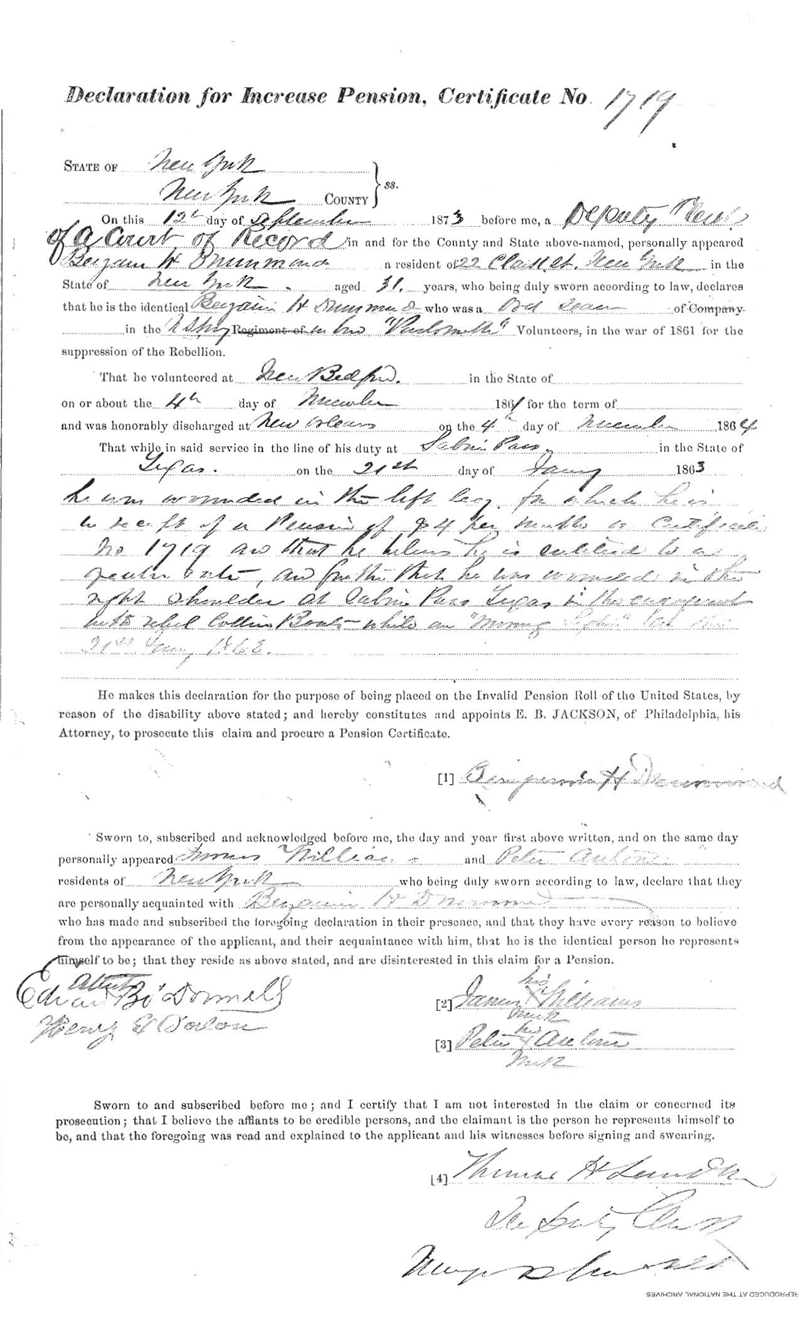 Declaration for Increase Pension, Certificate No. 1719
STATE OF New York
New York COUNTY } ss.
On this 12th day of September 1873 before me, a Deputy Clerk
of a Court of Record in and for the County and State above-named, personally appeared
Benjamin H Drummond a resident of 22 St. New York in the
State of New York aged 31 years, who being duly sworn according to law, declares
that he is the identical Benjamin H Drummond who was a Ord Seaman of Company
in the U S Ship Regiment of Volunteers, in the war of 1861 for the
suppression of the Rebellion.
That he volunteered at New Bedford. in the State of
on or about the 4th day of 1861 for the term of
and was honorably discharged at New Orleans on the 4th day of 1864
That while in said service in the line of his duty at Sabine Pass in the State of
Texas. on the 21st day of Jany 1863
he was wounded in the left leg, for which he is
in receipt of a Pension of $4 per month Certificate
No 1719 and that he believes he is entitled to a
greater rate, and further that he was wounded in the
right shoulder at Sabine Pass Texas in the engagement
with rebel Cotton Boats while on "Morning Light" on the
21st Jany 1863.
He makes this declaration for the purpose of being placed on the Invalid Pension Roll of the United States, by
reason of the disability above stated; and hereby constitutes and appoints E. B. JACKSON, of Philadelphia, his
Attorney, to prosecute this claim and procure a Pension Certificate.
[1] Benjamin H Drummond
Sworn to, subscribed and acknowledged before me, the day and year first above written, and on the same day
personally appeared Williams and Peter Antone
residents of New York who being duly sworn according to law, declare that they
are personally acquainted with Benjamin H Drummond
who has made and subscribed the foregoing declaration in their presence, and that they have every reason to believe
from the appearance of the applicant, and their acquaintance with him, that he is the identical person he represents
himself to be; that they reside as above stated, and are disinterested in this claim for a Pension.
Attest
Edward B O'Donnell
Henry
his
[2] James x Williams
mark
his
[3] Peter x Antone
mark
Sworn to and subscribed before me; and I certify that I am not interested in the claim or concerned its
prosecution; that I believe the affiants to be credible persons, and the claimant is the person he represents himself to
be, and that the foregoing was read and explained to the applicant and his witnesses before signing and swearing.
[4] Thomas H
Deputy Clerk
REPRODUCED AT THE NATIONAL ARCHIVES